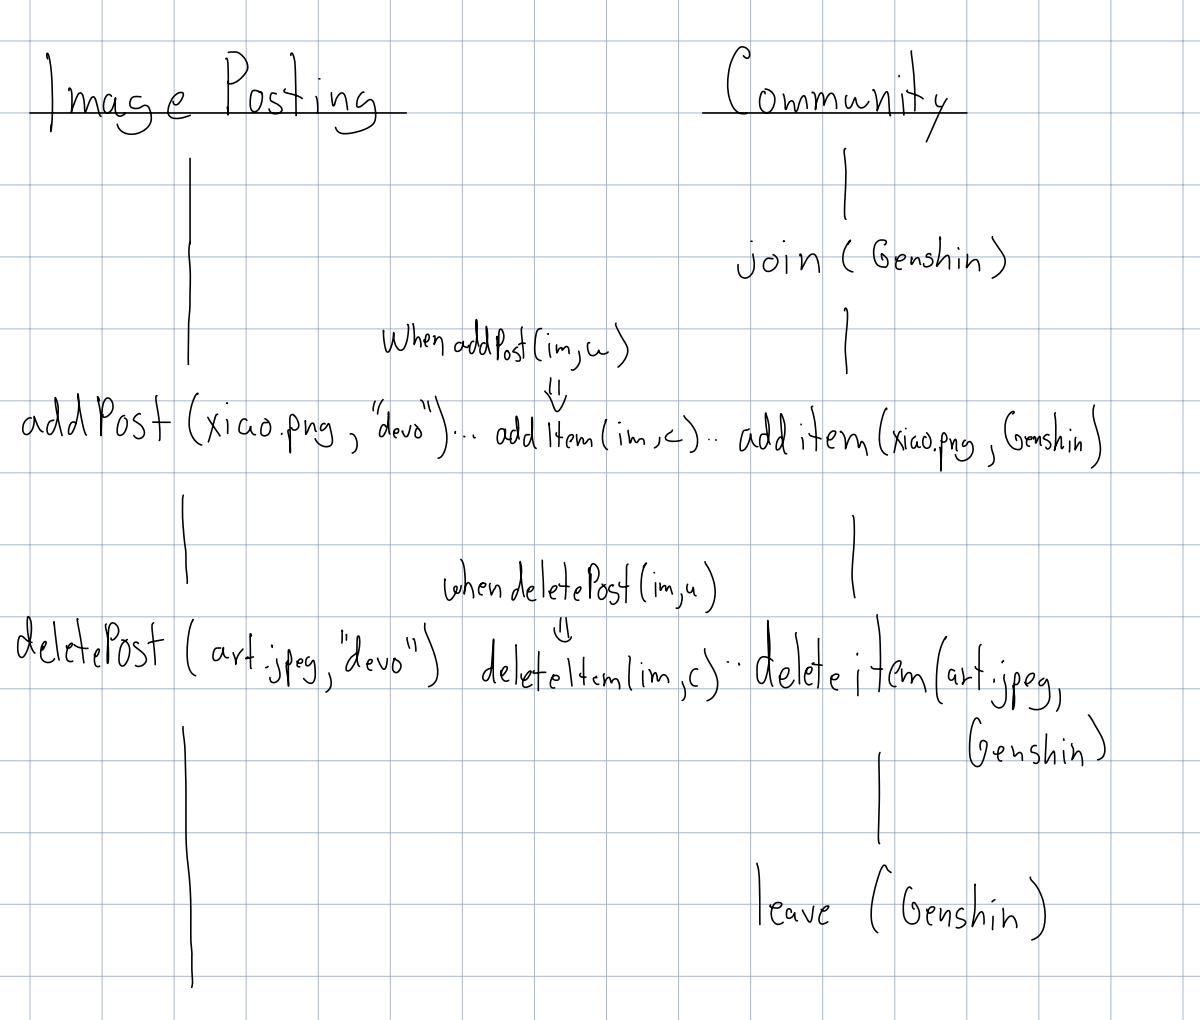 Image Posting
Community
join ( Genshin )
When addPost(im,u)
⇓
addPost (xiao.png, "devo")... addItem(im,c).. add item (xiao.png, Genshin)
when deletePost(im,u)
⇓
deletePost ( art.jpeg, "devo") deleteItem(im,c).. delete item (art.jpeg,
Genshin)
leave ( Genshin )